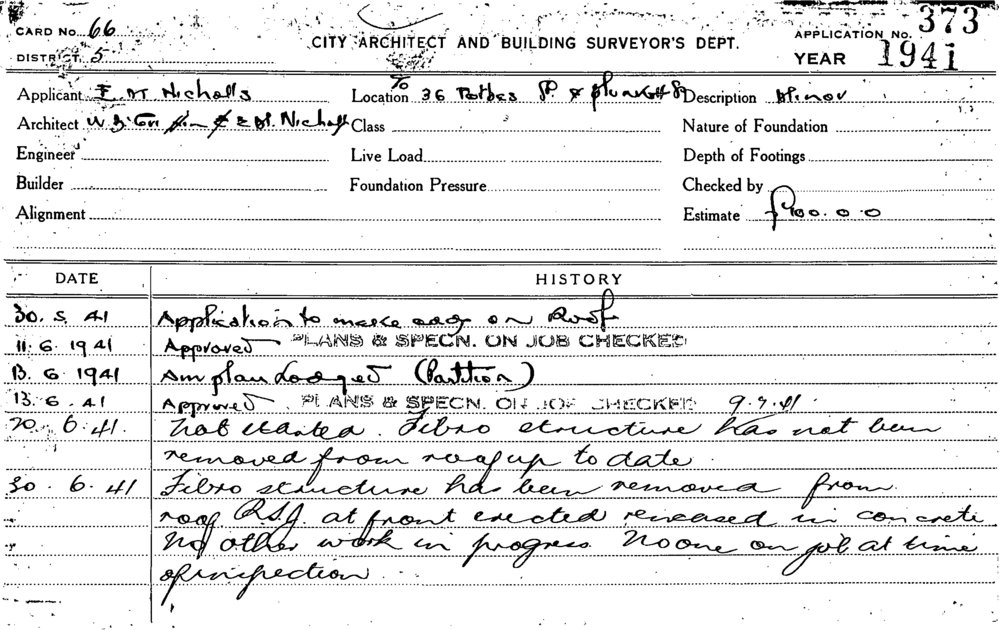 CARD No. 66
DISTRICT. 5
CITY ARCHITECT AND BUILDING SURVEYOR'S DEPT.
APPLICATION No. 373
YEAR 1941
Applicant E M Nicholls Location To 36 Forbes St. & Plunkett St Description Minor
Architect W. B. Griffin & E M. Nicholls Class Nature of Foundation
Engineer Live Load Depth of Footings
Builder Foundation Pressure Checked by
Alignment Estimate £400.0.0
DATE HISTORY
30. 5. 41 Application to make on Roof
11. 6. 1941 Approved PLANS & SPECN. ON JOB CHECKED
13. 6 1941 Am plan Lodged (Partition)
13. 6. 41 Approved PLANS & SPECN. ON JOB CHECKED 9.7.41.
20. 6. 41. Not started. Fibro structure has not been
removed from roof up to date
30. 6. 41 Fibro structure has been removed from
roof R.S.J. at front erected in concrete
No other work in progress. No one on job at time
of inspection